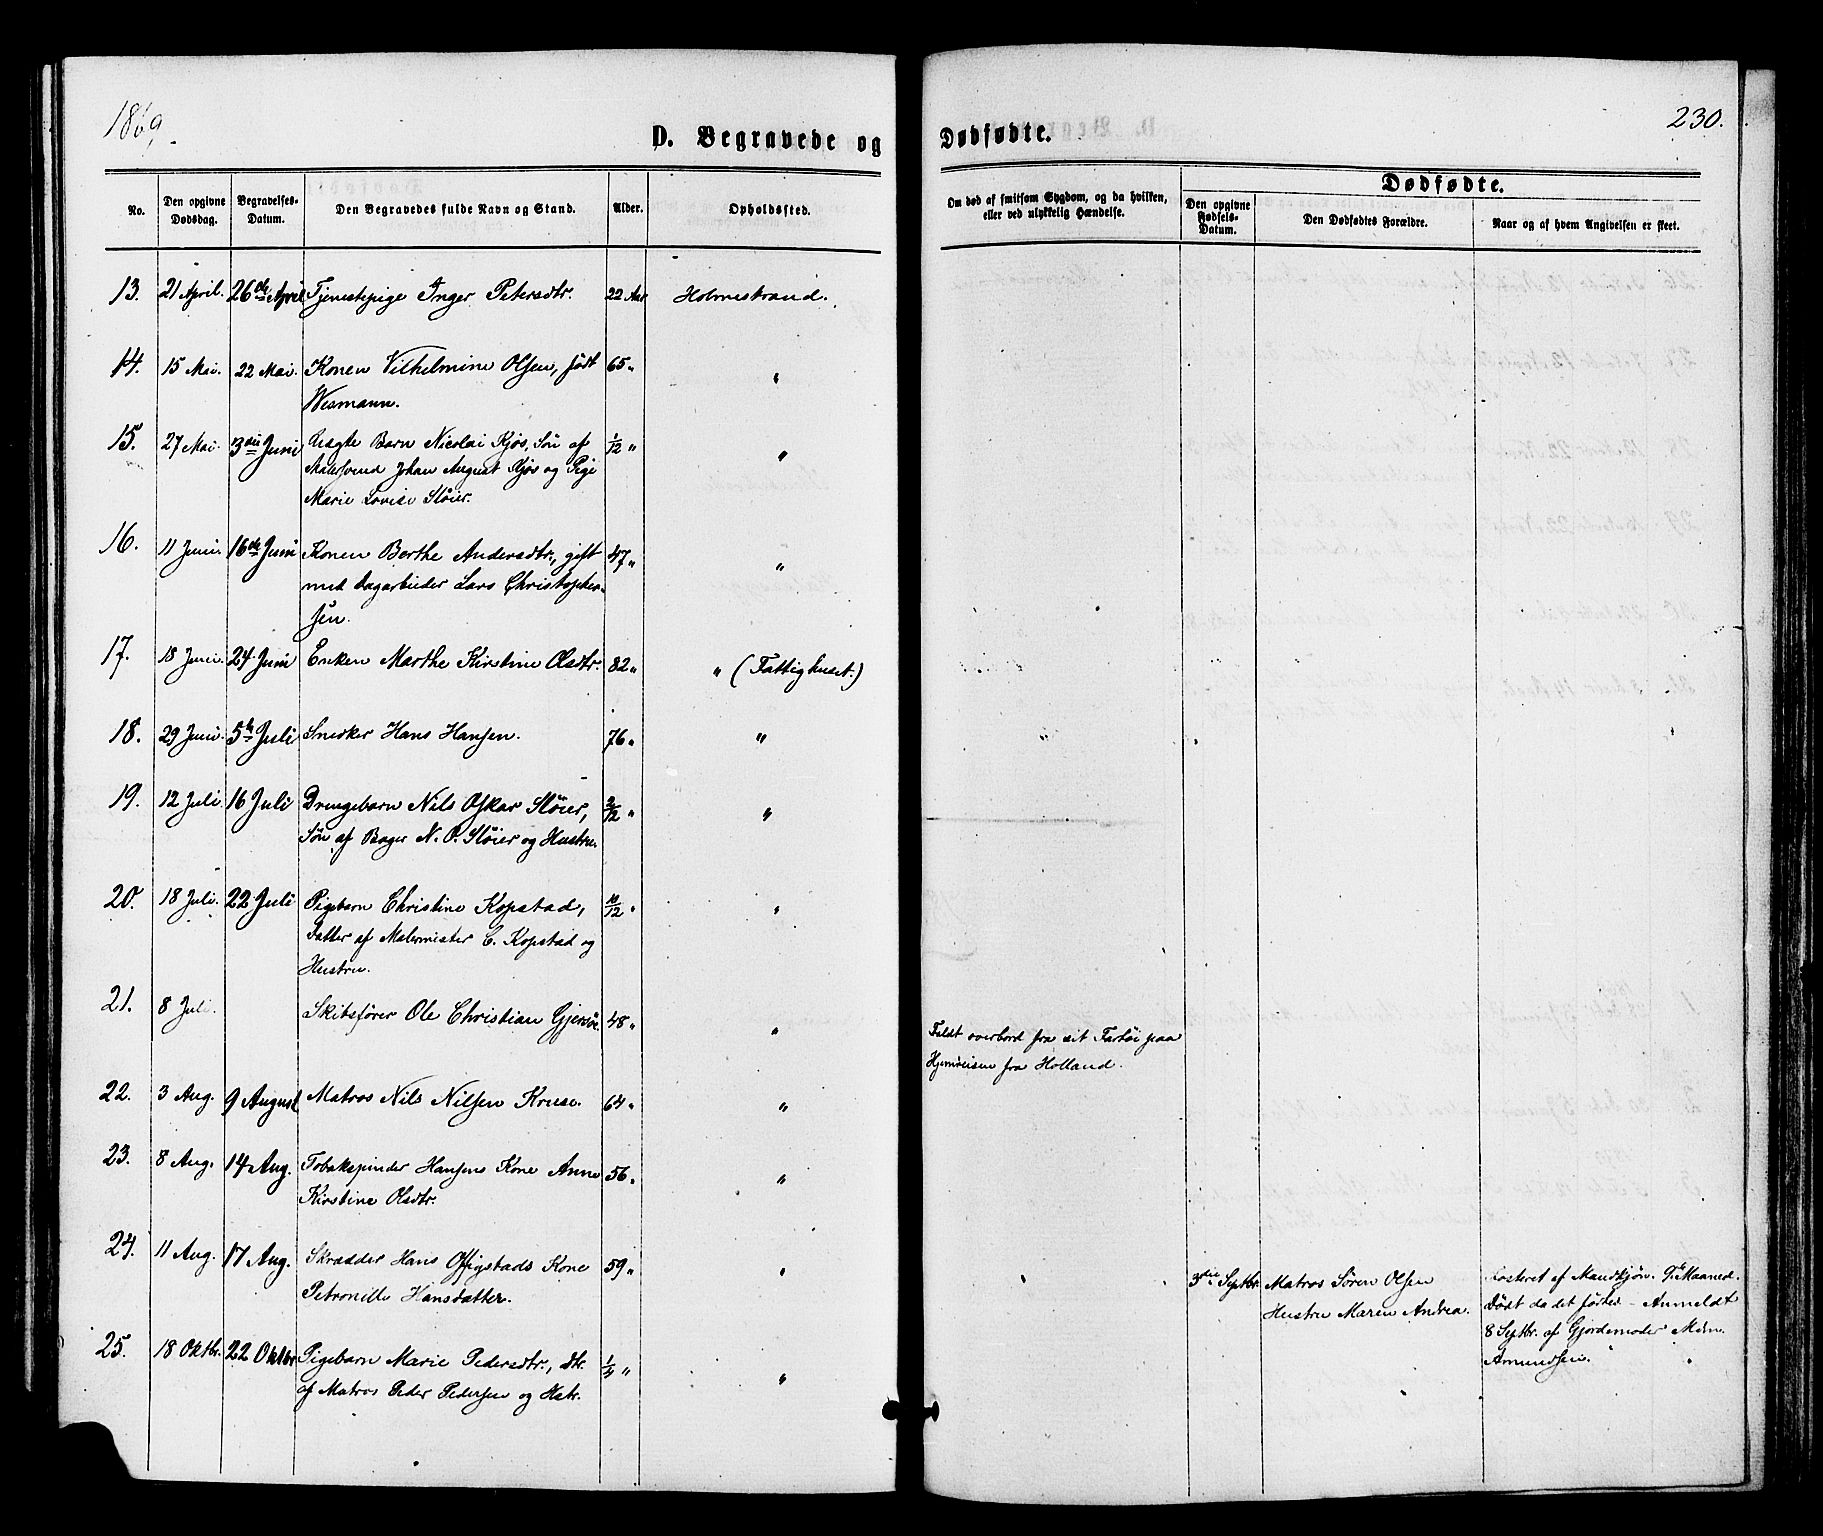 1869.
230.
D. Begravede og Dødfødte.
No.
Den opgivne Dødsdag.
Begravelses-Datum.
Den Begravedes fulde Navn og Stand.
Alder.
Opholdssted.
Om død af smitsom Sygdom, og da hvilken, eller ved ulykkelig Hændelse.
Dødfødte.
Den opgivne Fødsels-Datum.
Den Dødfødtes Forældre.
Naar og af hvem Angivelsen er skeet.
13. 21 April. 26de April Tjenestepige Inger Petersdtr. 22 Aar Holmestrand.
14. 15 Mai. 22 Mai. Konen Vilhelmine Olsen, født 65 " "
Wesmann.
15. 27 Mai. 3die Juni Uægte Barn Nicolai Kjøs, Søn af 1/12 " "
Malersvend Johan August Kjøs og Pige
Marie Lovise Støier.
16. 11 Juni. 16de Juni Konen Berthe Andersdtr., gift 47 " "
med Dagarbeider Lars Christopher-
sen.
17. 18 Juni. 24 Juni Enken Marthe Kirstine Olsdtr. 82 " " (Fattighuset.)
18. 29 Juni. 5te Juli Snedker Hans Hansen. 76 " "
19. 12 Juli. 16 Juli Drengebarn Nils Oskar Støier, 2/12 " "
Søn af Bager N. O. Støier og Hustru.
20. 18 Juli. 22 Juli Pigebarn Christine Kopstad, 10/12 " "
Datter af Malermester C. Kopstad og
Hustru.
21. 8 Juli. Skibsfører Ole Christian Gjersøe. 48 " "
Faldt overbord fra sit Fartøi paa
Hjemreisen fra Holland.
22. 3 Aug. 9 August Matros Nils Nilsen Kruse. 64 " "
23. 8 Aug. 14 Aug. Tobakspinder Hansens Kone Anne 56 " "
Kirstine Olsdtr.
24. 11 Aug. 17 Aug. Skrædder Hans Offigstads Kone 59 " "
Petronille Hansdatter.
25. 18 Oktbr. 22 Oktbr Pigebarn Marie Pedersdtr., dtr. 1/4 " "
af Matros Peder Pedersen og Hstr.
3die Septbr. Matros Søren Olsen
Hustru Maren Andrea.
Fosteret af Mandkjøn. 7de Maaned.
Dødt da det fødtes - Anmeldt
8 Septbr. af Gjordemoder Mdm.
Amundsen.